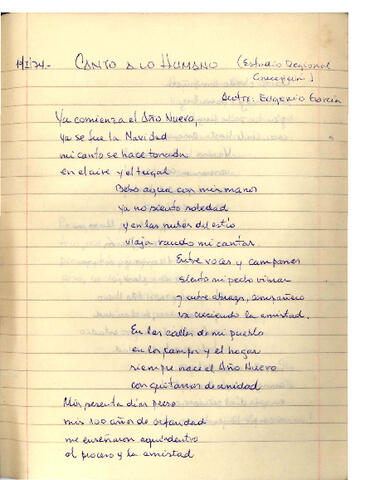 11/I/74.- CANTO A LO HUMANO (Estadio Regional
Concepción)
Autor: Eugenio García
Ya comienza el Año Nuevo,
ya se fue la Navidad
mi canto se hace tonada
en el aire y el trigal
Bebo agua con mis manos
ya no siento soledad
y en las nubes del estío
viaja raudo mi cantar.
Entre voces y campanas
siento mi pecho vibrar
y entre abrazo, compañero
va creciendo la amistad.
En las calles de mi pueblo
en los campos y el hogar
siempre nace el Año Nuevo
con guitarras de unidad
Mis días preso
mis 100 años de orfandad
me enseñaron aquí dentro
el proceso y la amistad